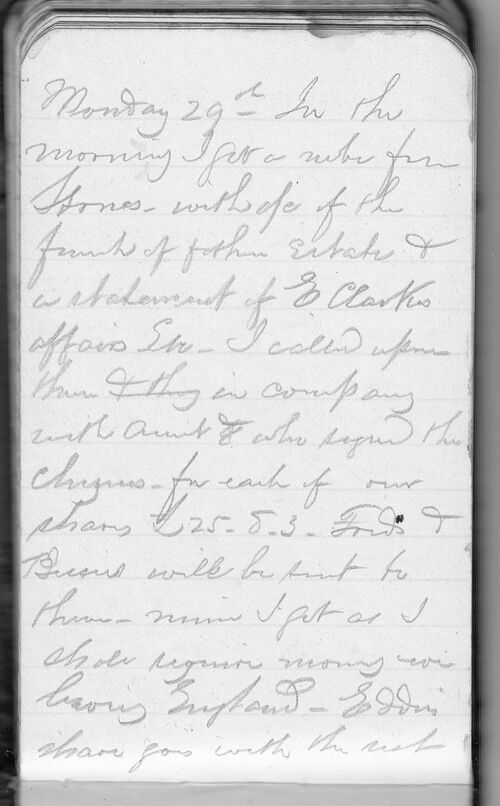 Monday 29th In the
morning I got a note from
Stones - with a/c of the
funds of father Estate &
a statement of E Clarks
affairs Etc - I called upon
them & they in company
with Aunt E who signed the
cheques - for each of our
shares £25 - 8 - 3 - Fords &
Bessies will be sent to
them - mine I got as I
shall require money on
leaving England - Eddies
share goes with the rest